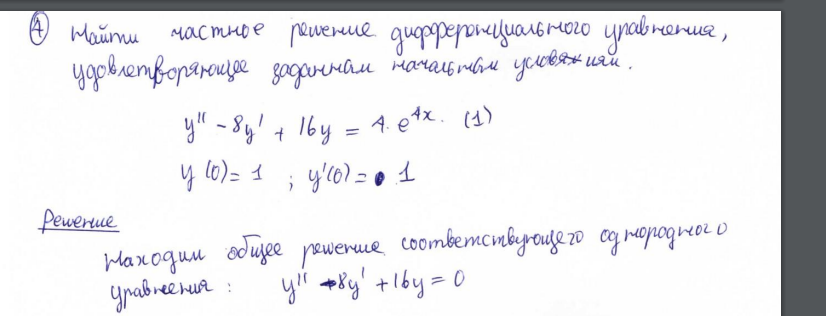 ④ Найти частное решение дифференциального уравнения,
удовлетворяющее заданным начальным условиям.
y'' - 8y' + 16y = 4 · e^{4x}. (1)
y(0) = 1 ; y'(0) = 1
Решение
Находим общее решение соответствующего однородного
уравнения: y'' - 8y' + 16y = 0